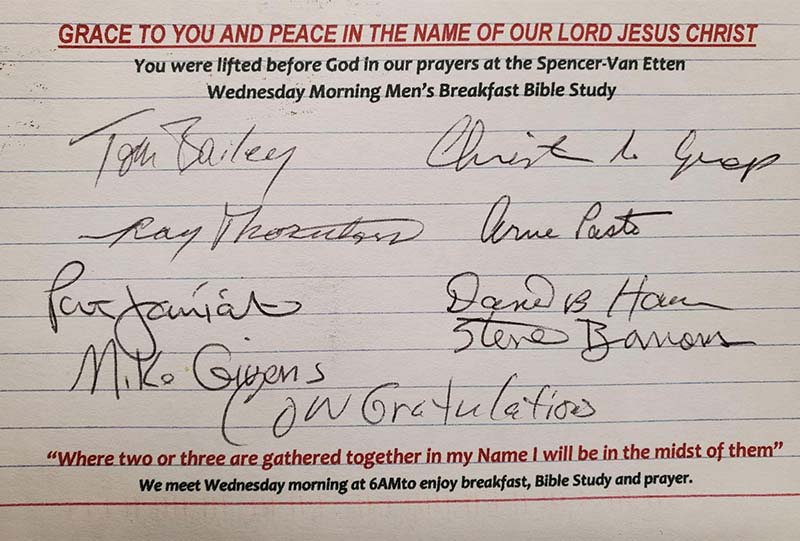 GRACE TO YOU AND PEACE IN THE NAME OF OUR LORD JESUS CHRIST
You were lifted before God in our prayers at the Spencer-Van Etten
Wednesday Morning Men's Breakfast Bible Study
Tom Bailey
Ray Thornton
Arne
David B
Steve
Mike Givens
CONGratulations
"Where two or three are gathered together in my Name I will be in the midst of them"
We meet Wednesday morning at 6AMto enjoy breakfast, Bible Study and prayer.